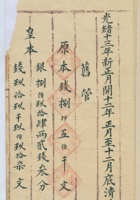 光緒十三年新正月開十二年正月至十二月底清
舊管
原本錢捌 五 千 文
銀捌拾玖肆兩貳錢叁分
皇本
錢玖拾玖千玖伯玖拾柒文